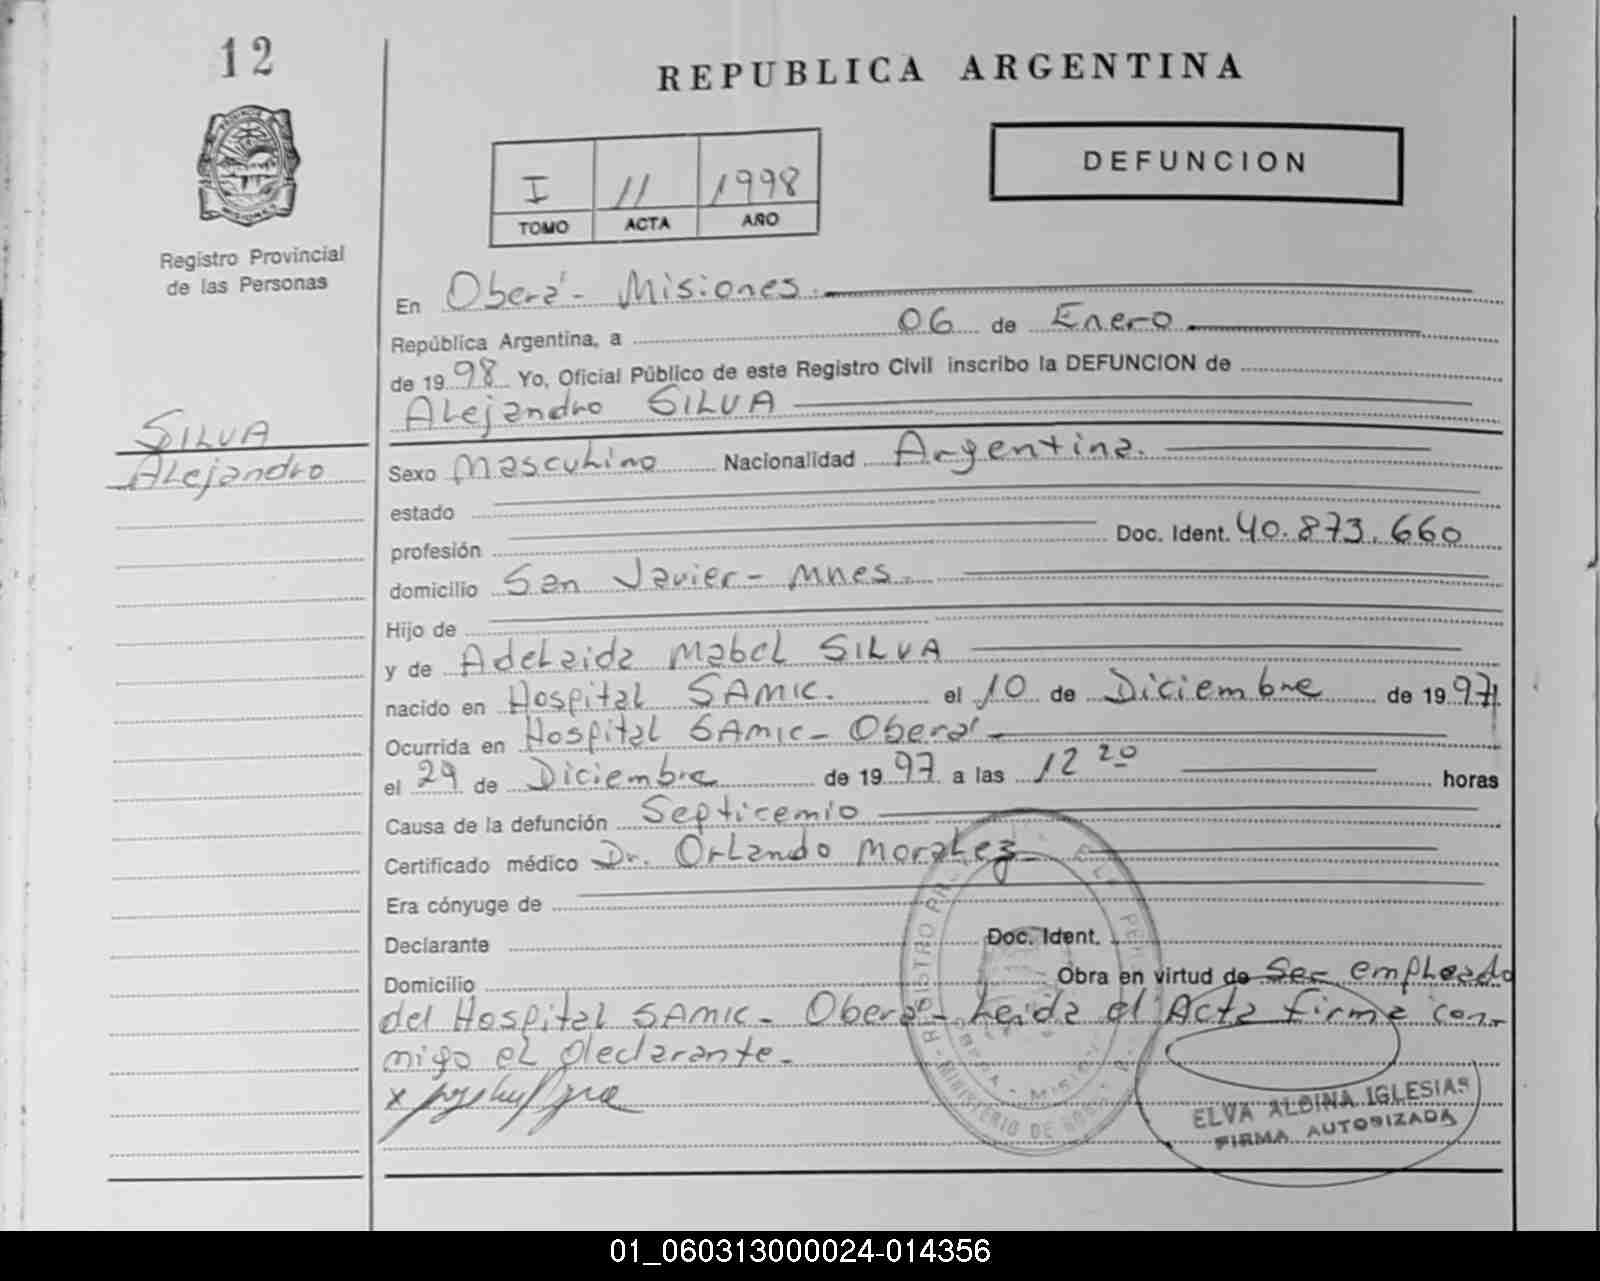 12
REPUBLICA ARGENTINA
DEFUNCION
I 11 1998
TOMO ACTA AÑO
Registro Provincial
de las Personas
En Oberá - Misiones.
República Argentina, a 06 de Enero
de 1998 Yo, Oficial Público de este Registro Civil inscribo la DEFUNCION de
Alejandro SILVA
SILVA
Alejandro
Sexo Masculino Nacionalidad Argentina.
estado
profesión Doc. Ident. 40.873.660
domicilio San Javier - Mnes.
Hijo de
y de Adelaida Mabel SILVA
nacido en Hospital SAMIC. el 10 de Diciembre de 1997
Ocurrida en Hospital SAMIC - Oberá -
el 29 de Diciembre de 1997 a las 12 20 horas
Causa de la defunción Septicemio
Certificado médico Dr. Orlando Moralez
Era cónyuge de
Declarante Doc. Ident.
Domicilio Obra en virtud de Ser empleado
del Hospital SAMIC - Oberá - Leida el Acta firma con-
migo el declarante -
x
ELVA ALBINA IGLESIAS
FIRMA AUTORIZADA
01_060313000024-014356